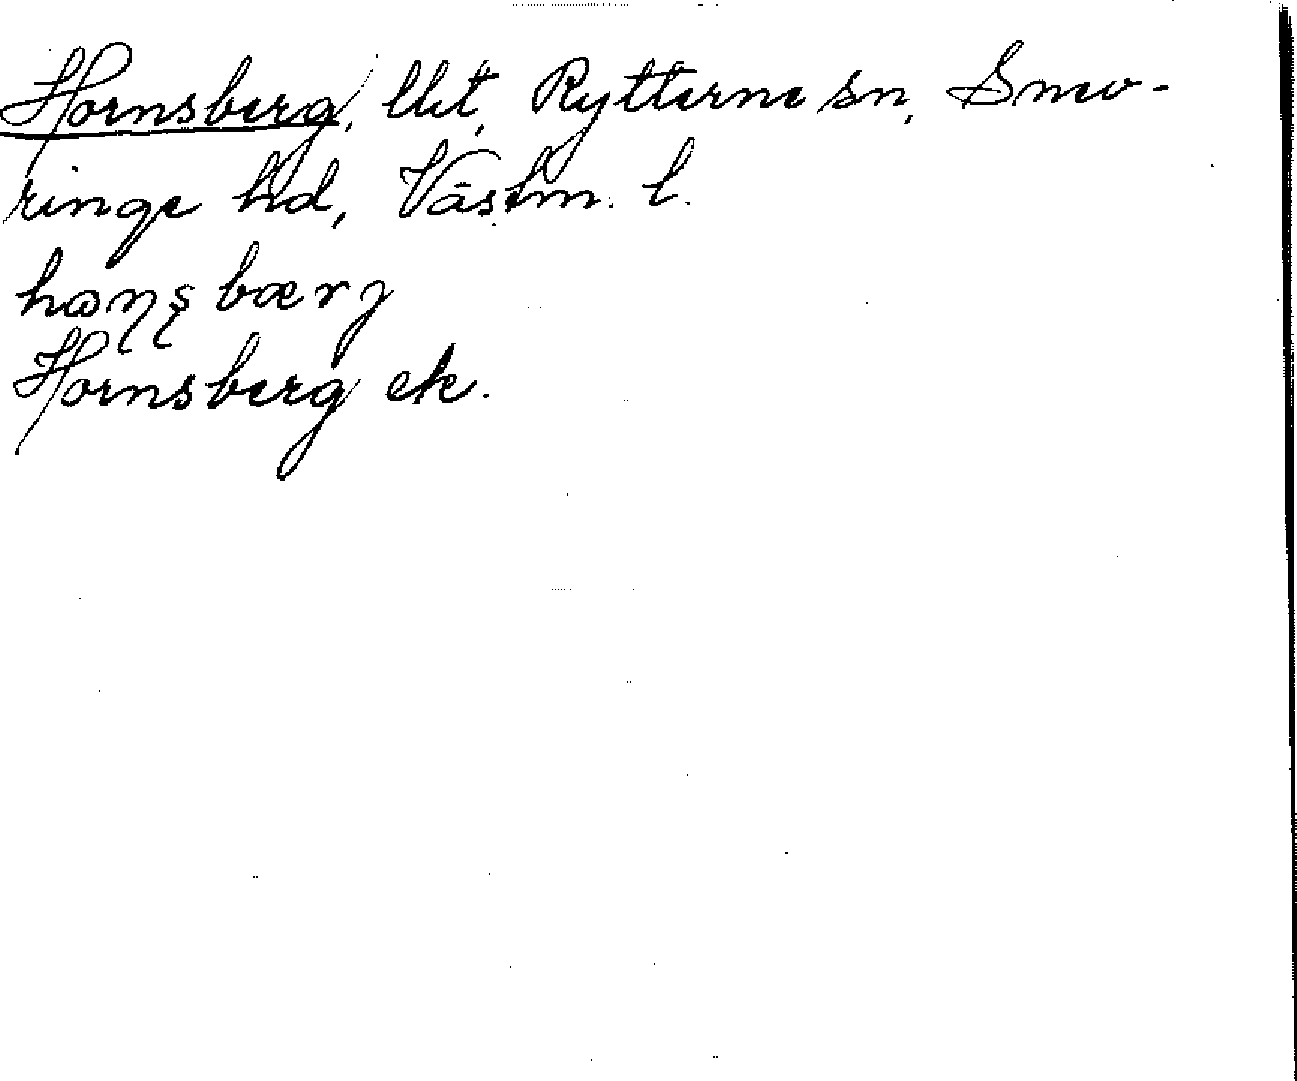 Hornsberg, lht, Rytterne sn, Snev-
ringe hd, Västm. l.
hɷɳʂbærj
Hornsberg ek.